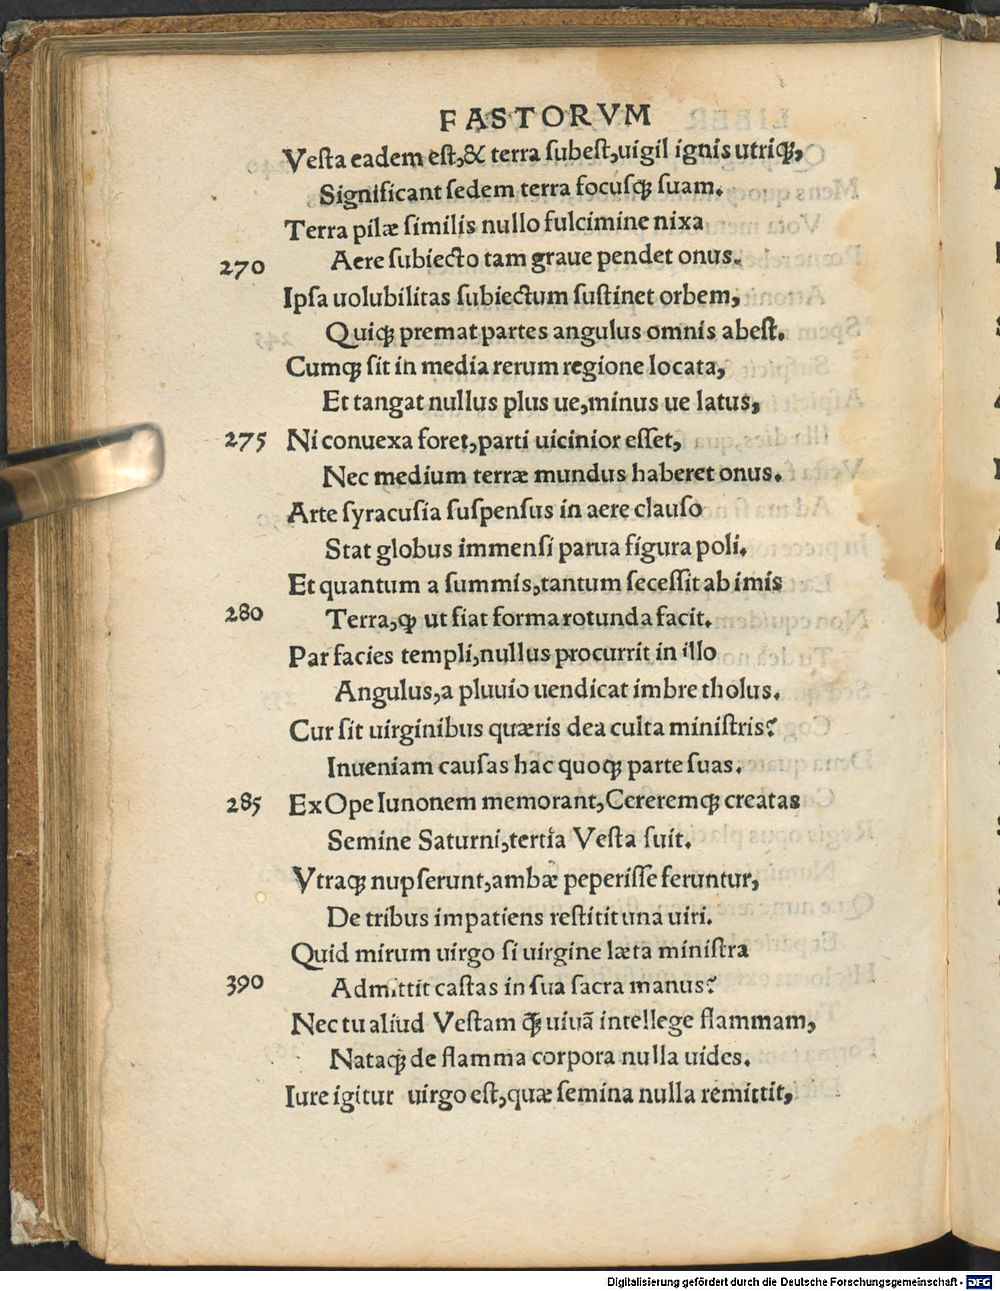 FASTORVM
Vesta eadem est,& terra subest,uigil ignis utriq;,
Significant sedem terra focusq; suam.
Terra pilæ similis nullo fulcimine nixa
270 Aere subiecto tam graue pendet onus.
Ipsa uolubilitas subiectum sustinet orbem,
Quiq; premat partes angulus omnis abest.
Cumq; sit in media rerum regione locata,
Et tangat nullus plus ue,minus ue latus,
275 Ni conuexa foret,parti uicinior esset,
Nec medium terræ mundus haberet onus.
Arte syracusia suspensus in aere clauso
Stat globus immensi parua figura poli.
Et quantum a summis,tantum secessit ab imis
280 Terra,qꝫ ut fiat forma rotunda facit.
Par facies templi,nullus procurrit in illo
Angulus,a pluuio uendicat imbre tholus.
Cur sit uirginibus quæris dea culta ministris?
Inueniam causas hac quoq; parte suas.
285 Ex Ope Iunonem memorant,Cereremq; creatas
Semine Saturni,tertia Vesta fuit.
Vtraq; nupserunt,ambæ peperisse feruntur,
De tribus impatiens restitit una uiri.
Quid mirum uirgo si uirgine læta ministra
390 Admittit castas in sua sacra manus?
Nec tu aliud Vestam q̃ uiuã intellege flammam,
Nataq; de flamma corpora nulla uides.
Iure igitur uirgo est,quæ semina nulla remittit,
Digitalisierung gefördert durch die Deutsche Forschungsgemeinschaft - DFG